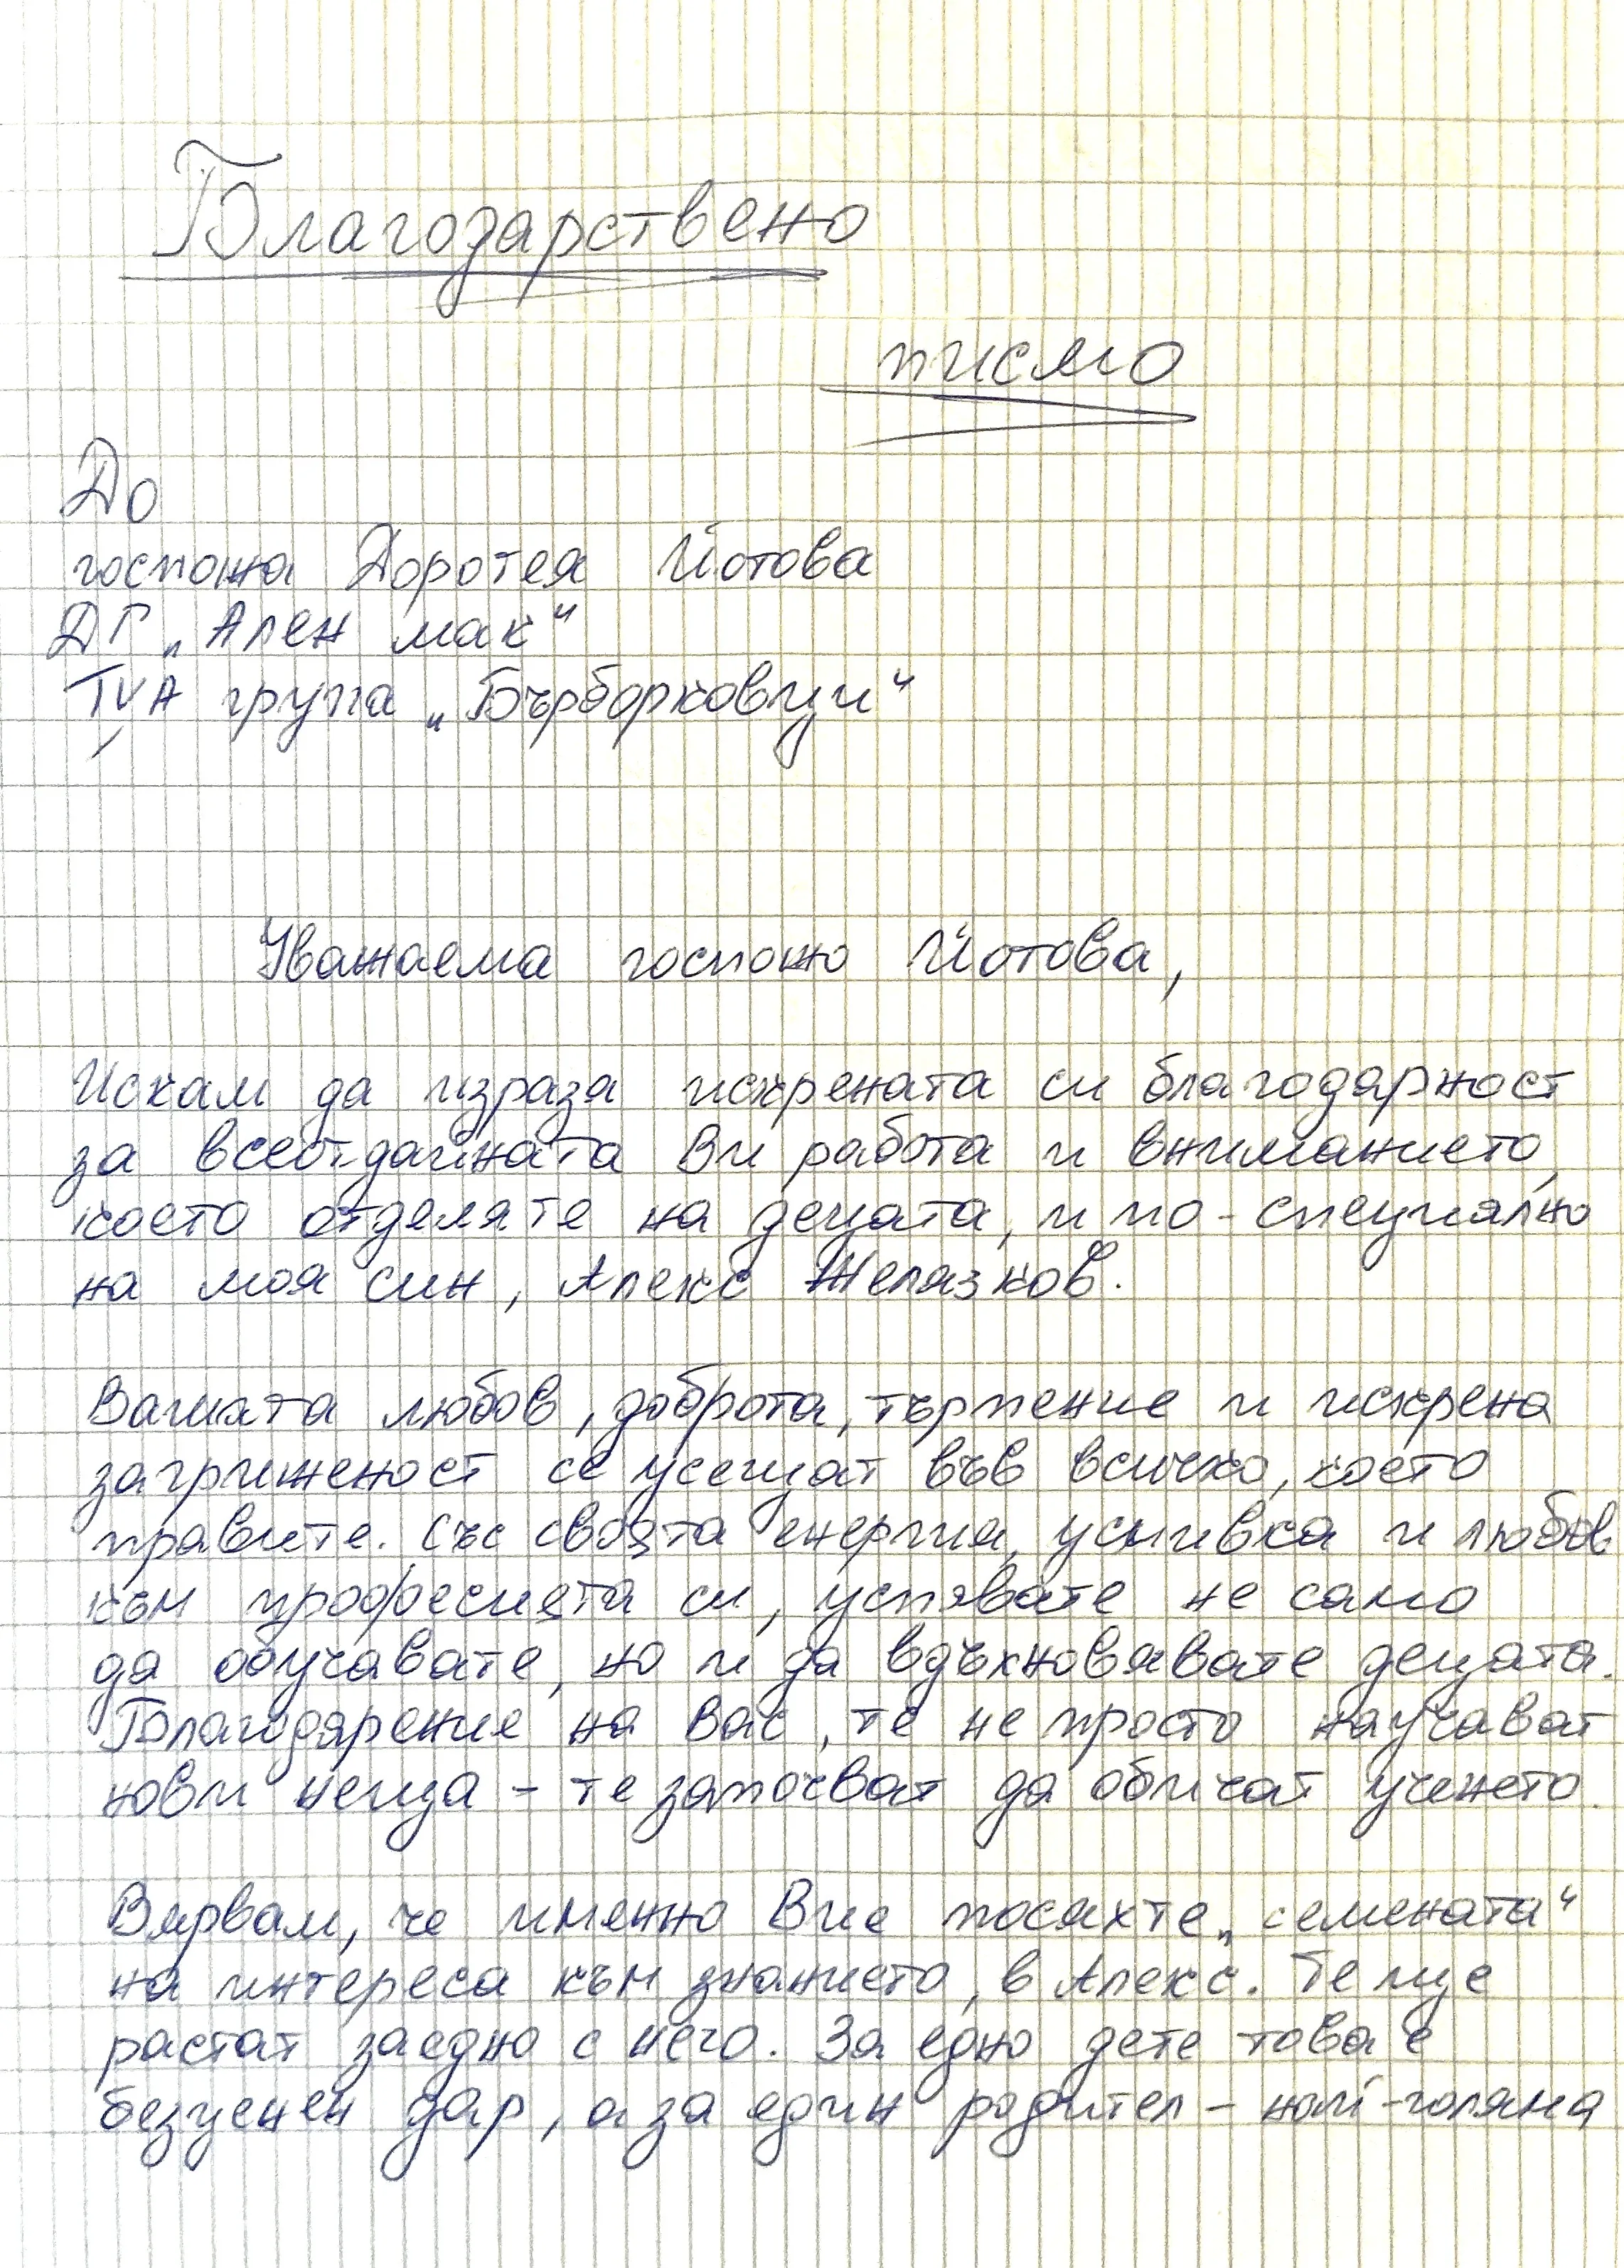 Благодарствено
писмо
До
госпожа Доротея Йотова
ДГ „Ален мак“
IVA група „Бърборковци“
Уважаема госпожо Йотова,
Искам да изразя искрената си благодарност
за всеотдайната Ви работа и вниманието,
което отделяте на децата, и по-специално
на моя син, Алекс Желязков.
Вашата любов, доброта, търпение и искрена
загриженост се усещат във всичко, което
правите. Със своята енергия, усмивка и любов
към професията си, успявате не само
да обучавате, но и да вдъхновявате децата.
Благодарение на Вас, те не просто научават
нови неща - те започват да обичат ученето.
Вярвам, че именно Вие посяхте „семената“
на интереса към знанието, в Алекс. Те ще
растат заедно с него. За едно дете това е
безценен дар, а за един родител - най-голяма